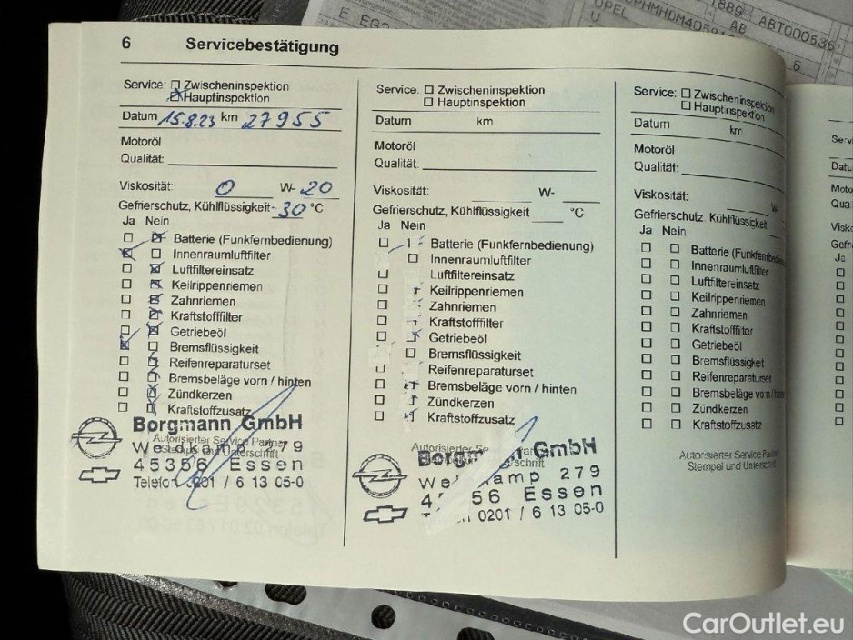 E EG
OPEL
U
AB
ABT000536
6
6 Servicebestätigung
Service: Zwischeninspektion
Hauptinspektion
Datum 15.8.23 km 27955
Motoröl
Qualität:
Viskosität: 0 W-20
Gefrierschutz, Kühlflüssigkeit -30 °C
Ja Nein
Batterie (Funkfernbedienung)
Innenraumluftfilter
Luftfiltereinsatz
Keilrippenriemen
Zahnriemen
Kraftstofffilter
Getriebeöl
Bremsflüssigkeit
Reifenreparaturset
Bremsbeläge vorn / hinten
Zündkerzen
Kraftstoffzusatz
Borgmann GmbH
Autorisierter Service Partner
Weidkamp 279
Stempel und Unterschrift
45356 Essen
Telefon 0201 / 6 13 05-0
Service: Zwischeninspektion
Hauptinspektion
Datum km
Motoröl
Qualität:
Viskosität: W-
Gefrierschutz, Kühlflüssigkeit °C
Ja Nein
Batterie (Funkfernbedienung)
Innenraumluftfilter
Luftfiltereinsatz
Keilrippenriemen
Zahnriemen
Kraftstofffilter
Getriebeöl
Bremsflüssigkeit
Reifenreparaturset
Bremsbeläge vorn / hinten
Zündkerzen
Kraftstoffzusatz
Autorisierter
GmbH
279
56 Essen
0201 / 6 13 05-0
Service: Zwischeninspektion
Hauptinspektion
Datum km
Motoröl
Qualität:
Viskosität: W-
Gefrierschutz, Kühlflüssigkeit
Ja Nein
Batterie (Funkfernbe
Innenraumluftfilter
Luftfiltereinsatz
Keilrippenriemen
Zahnriemen
Kraftstofffilter
Getriebeöl
Bremsflüssigkeit
Reifenreparaturset
Bremsbeläge vorn /
Zündkerzen
Kraftstoffzusatz
Autorisierter Service Partner
Stempel und Unterschrift
Servi
Datu
Moto
Qua
Visk
Ge
Ja
CarOutlet.eu